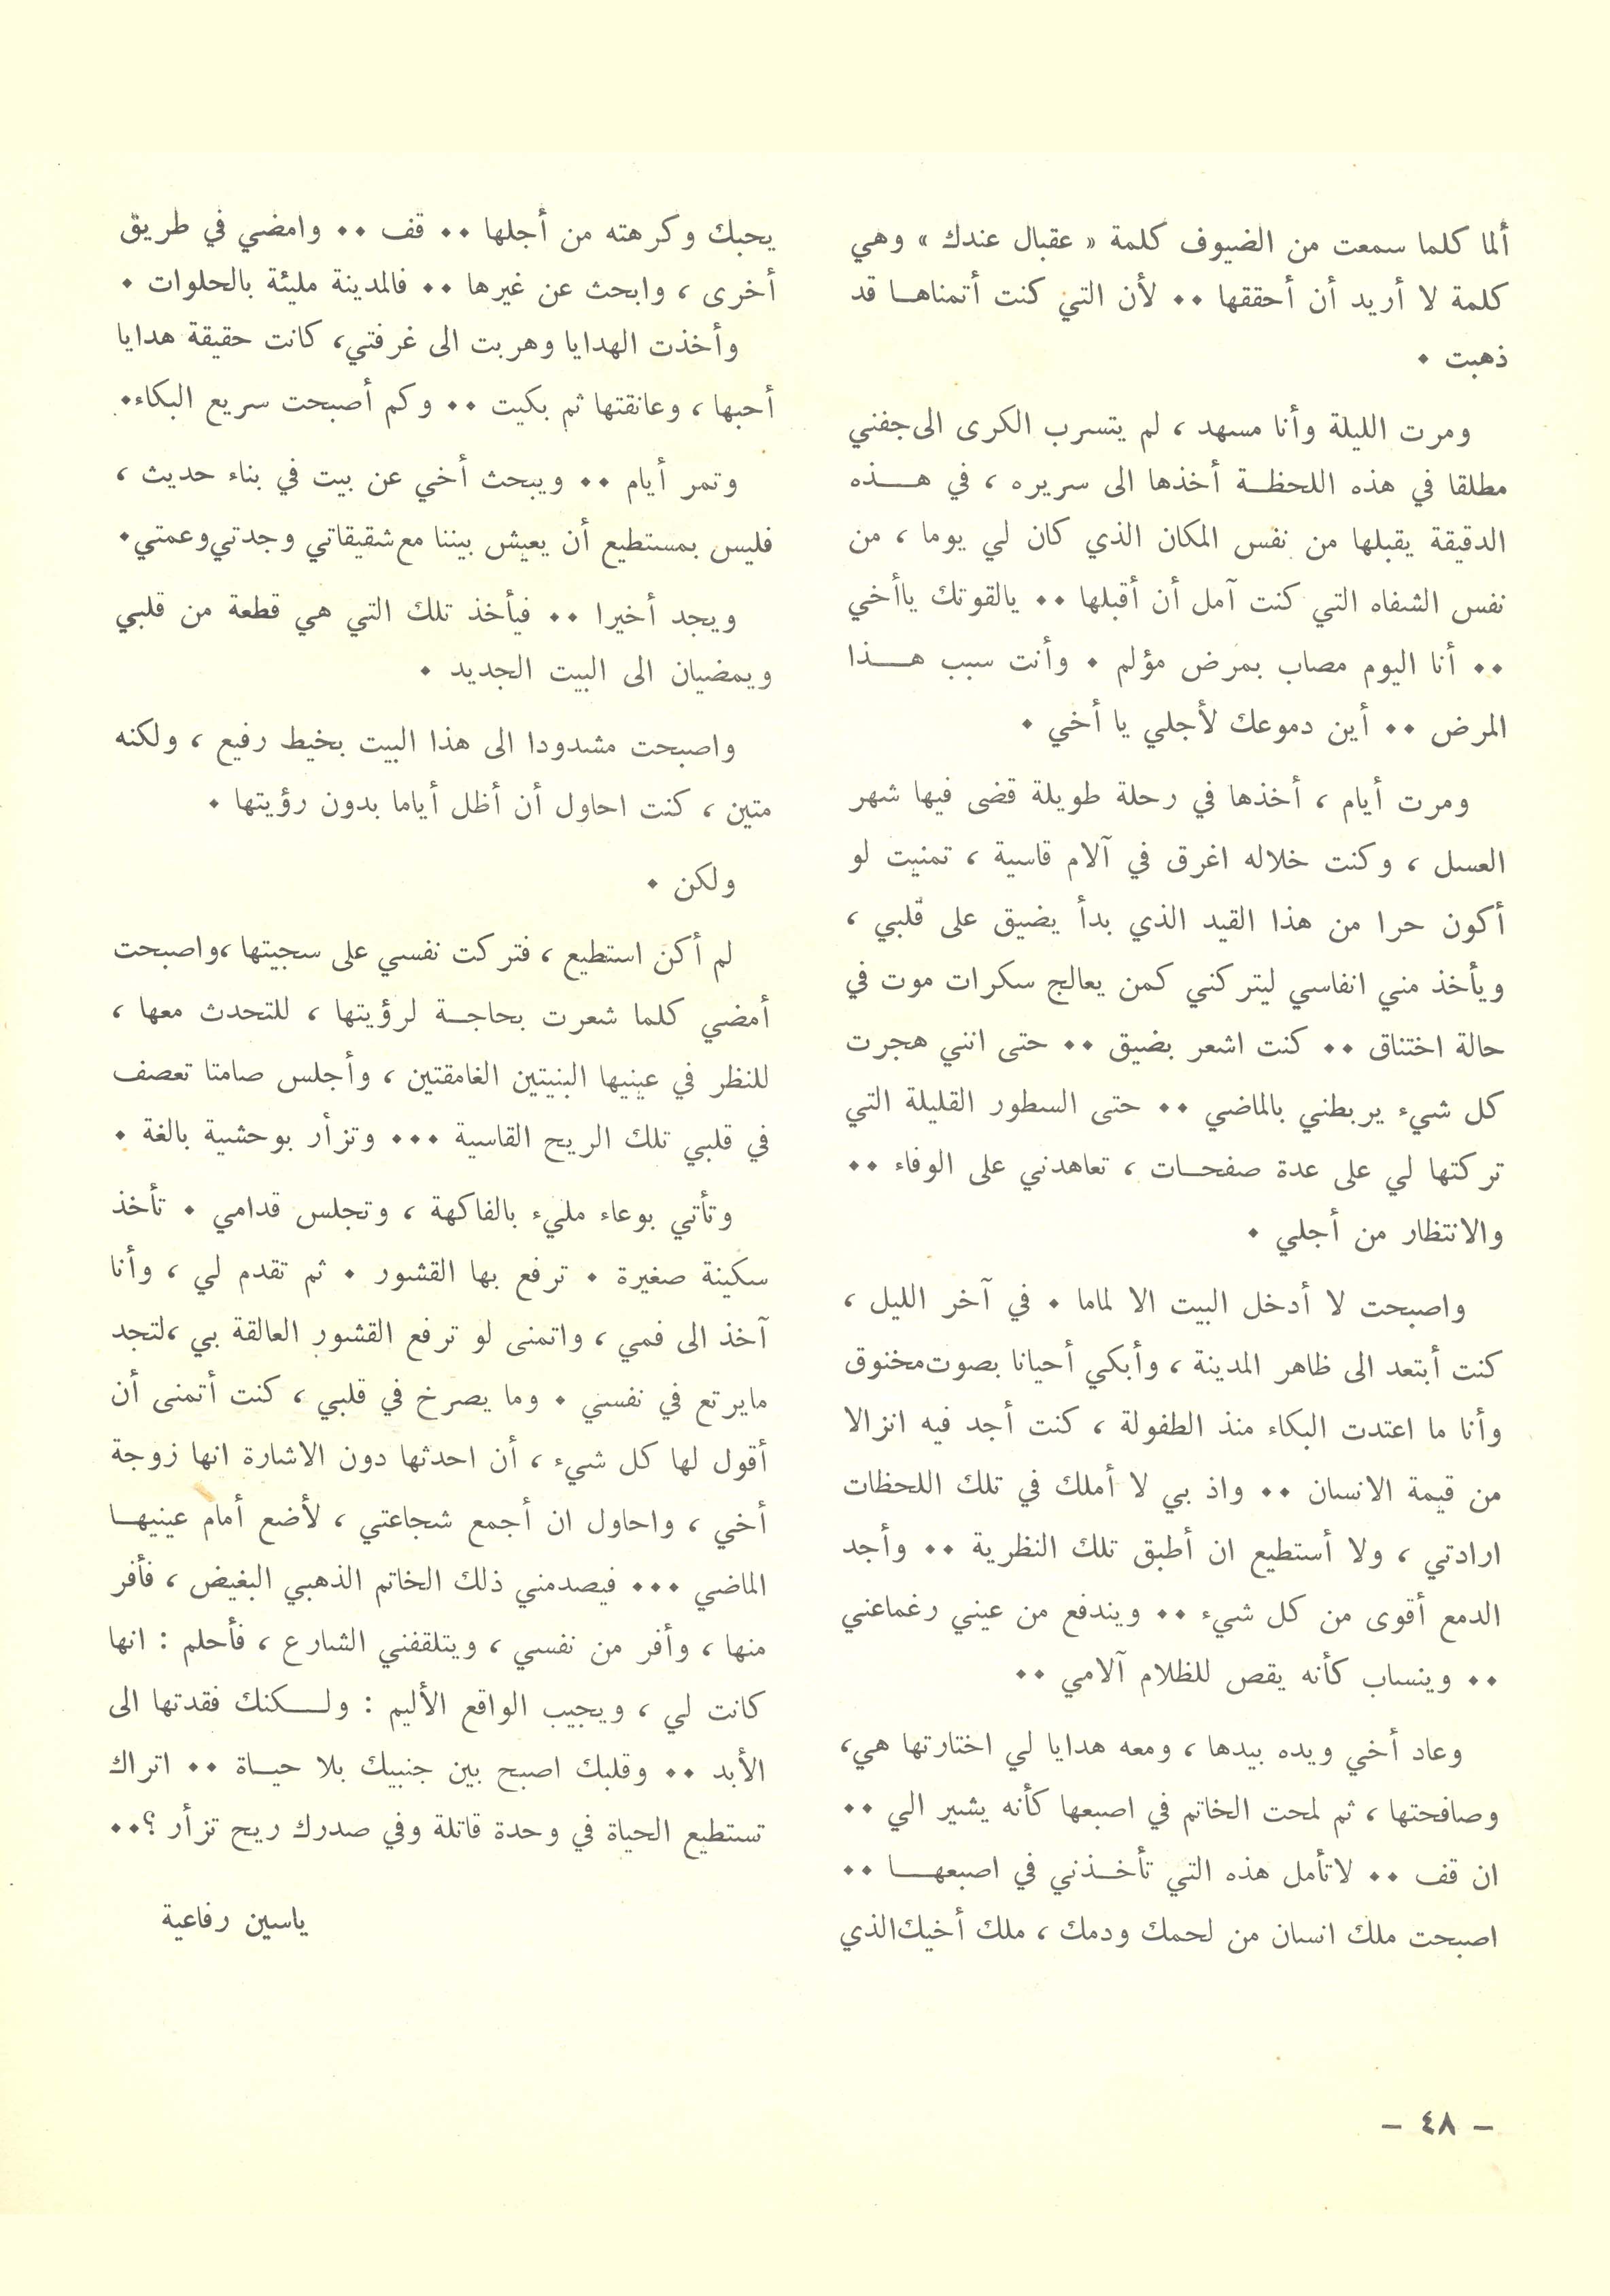 ألما كلما سمعت من الضيوف كلمة « عقبال عندك » وهي
كلمة لا أريد أن أحققها ٠٠ لأن التي كنت أتمناهـا قد
ذهبت ٠
ومرت الليلة وأنا مسهد ، لم يتسرب الكرى الى جفني
مطلقا في هذه اللحظـة أخذها الى سريره ، في هـــذه
الدقيقة يقبلها من نفس المكان الذي كان لي يوما ، من
نفس الشفاه التي كنت آمل أن أقبلها ٠٠ يالقوتك ياأخي
٠٠ أنا اليوم مصاب بمرض مؤلم ٠ وأنت سبب هـــذا
المرض ٠٠ أين دموعك لأجلي يا أخي ٠
ومرت أيام ، أخذها في رحلة طويلة قضى فيها شهر
العسل ، وكنت خلاله اغرق في آلام قاسية ، تمنيت لو
أكون حرا من هذا القيد الذي بدأ يضيق على قلبي ،
ويأخذ مني انفاسي ليتركني كمن يعالج سكرات موت في
حالة اختناق ٠٠ كنت اشعر بضيق ٠٠ حتى انني هجرت
كل شيء يربطني بالماضي ٠٠ حتى السطور القليلة التي
تركتها لي على عدة صفحـات ، تعاهدني على الوفاء ٠٠
والانتظار من أجلي ٠
واصبحت لا أدخل البيت الا لماما ٠ في آخر الليل ،
كنت أبتعد الى ظاهر المدينة ، وأبكي أحيانا بصوت مخنوق
وأنا ما اعتدت البكاء منذ الطفولة ، كنت أجد فيه انزالا
من قيمة الانسان ٠٠ واذ بي لا أملك في تلك اللحظات
ارادتي ، ولا أستطيع ان أطبق تلك النظرية ٠٠ وأجد
الدمع أقوى من كل شيء ٠٠ ويندفع من عيني رغماعني
٠٠ وينساب كأنه يقص للظلام آلامي ٠٠
وعاد أخي ويده بيدها ، ومعه هدايا لي اختارتها هي،
وصافحتها ، ثم لمحت الخاتم في اصبعها كأنه يشير الي ٠٠
ان قف ٠٠ لاتأمل هذه التي تأخـذني في اصبعهـــا ٠٠
اصبحت ملك انسان من لحمك ودمك ، ملك أخيك الذي
يحبك وكرهته من أجلها ٠٠ قف ٠٠ وامضي في طريق
أخرى ، وابحث عن غيرها ٠٠ فالمدينة مليئة بالحلوات ٠
وأخذت الهدايا وهربت الى غرفتي، كانت حقيقة هدايا
أحبها ، وعانقتها ثم بكيت ٠٠ وكم أصبحت سريع البكاء٠
وتمر أيام ٠٠ ويبحث أخي عن بيت في بناء حديث ،
فليس بمستطيع أن يعيش بيننا مع شقيقاتي وجدتي وعمتي٠
ويجد أخيرا ٠٠ فيأخذ تلك التي هي قطعة من قلبي
ويمضيان الى البيت الجديد ٠
واصبحت مشدودا الى هذا البيت بخيط رفيع ، ولكنه
متين ، كنت احاول أن أظل أياما بدون رؤيتها ٠
ولكن ٠
لم أكن استطيع ، فتركت نفسي على سجيتها ،واصبحت
أمضي كلما شعرت بحاجـة لرؤيتها ، للتحدث معها ،
للنظر في عينيها البنيتين الغامقتين ، وأجلس صامتا تعصف
في قلبي تلك الريح القاسية ٠٠٠ وتزأر بوحشية بالغة ٠
وتأتي بوعاء مليء بالفاكهة ، وتجلس قدامي ٠ تأخذ
سكينة صغيرة ٠ ترفع بها القشور ٠ ثم تقدم لي ، وأنا
آخذ الى فمي ، واتمنى لو ترفع القشور العالقة بي ،لتجد
مايرتع في نفسي ٠ وما يصرخ في قلبي ، كنت أتمنى أن
أقول لها كل شيء ، أن احدثها دون الاشارة انها زوجة
أخي ، واحاول ان أجمع شجاعتي ، لأضع أمام عينيهـا
الماضي ٠٠٠ فيصدمني ذلك الخاتم الذهبي البغيض ، فأفر
منها ، وأفر من نفسي ، ويتلقفني الشارع ، فأحلم : انها
كانت لي ، ويجيب الواقع الأليم : ولـــكنك فقدتها الى
الأبد ٠٠ وقلبك اصبح بين جنبيك بلا حيـاة ٠٠ اتراك
تستطيع الحياة في وحدة قاتلة وفي صدرك ريح تزأر ؟٠٠
ياسين رفاعية
– ٤٨ –